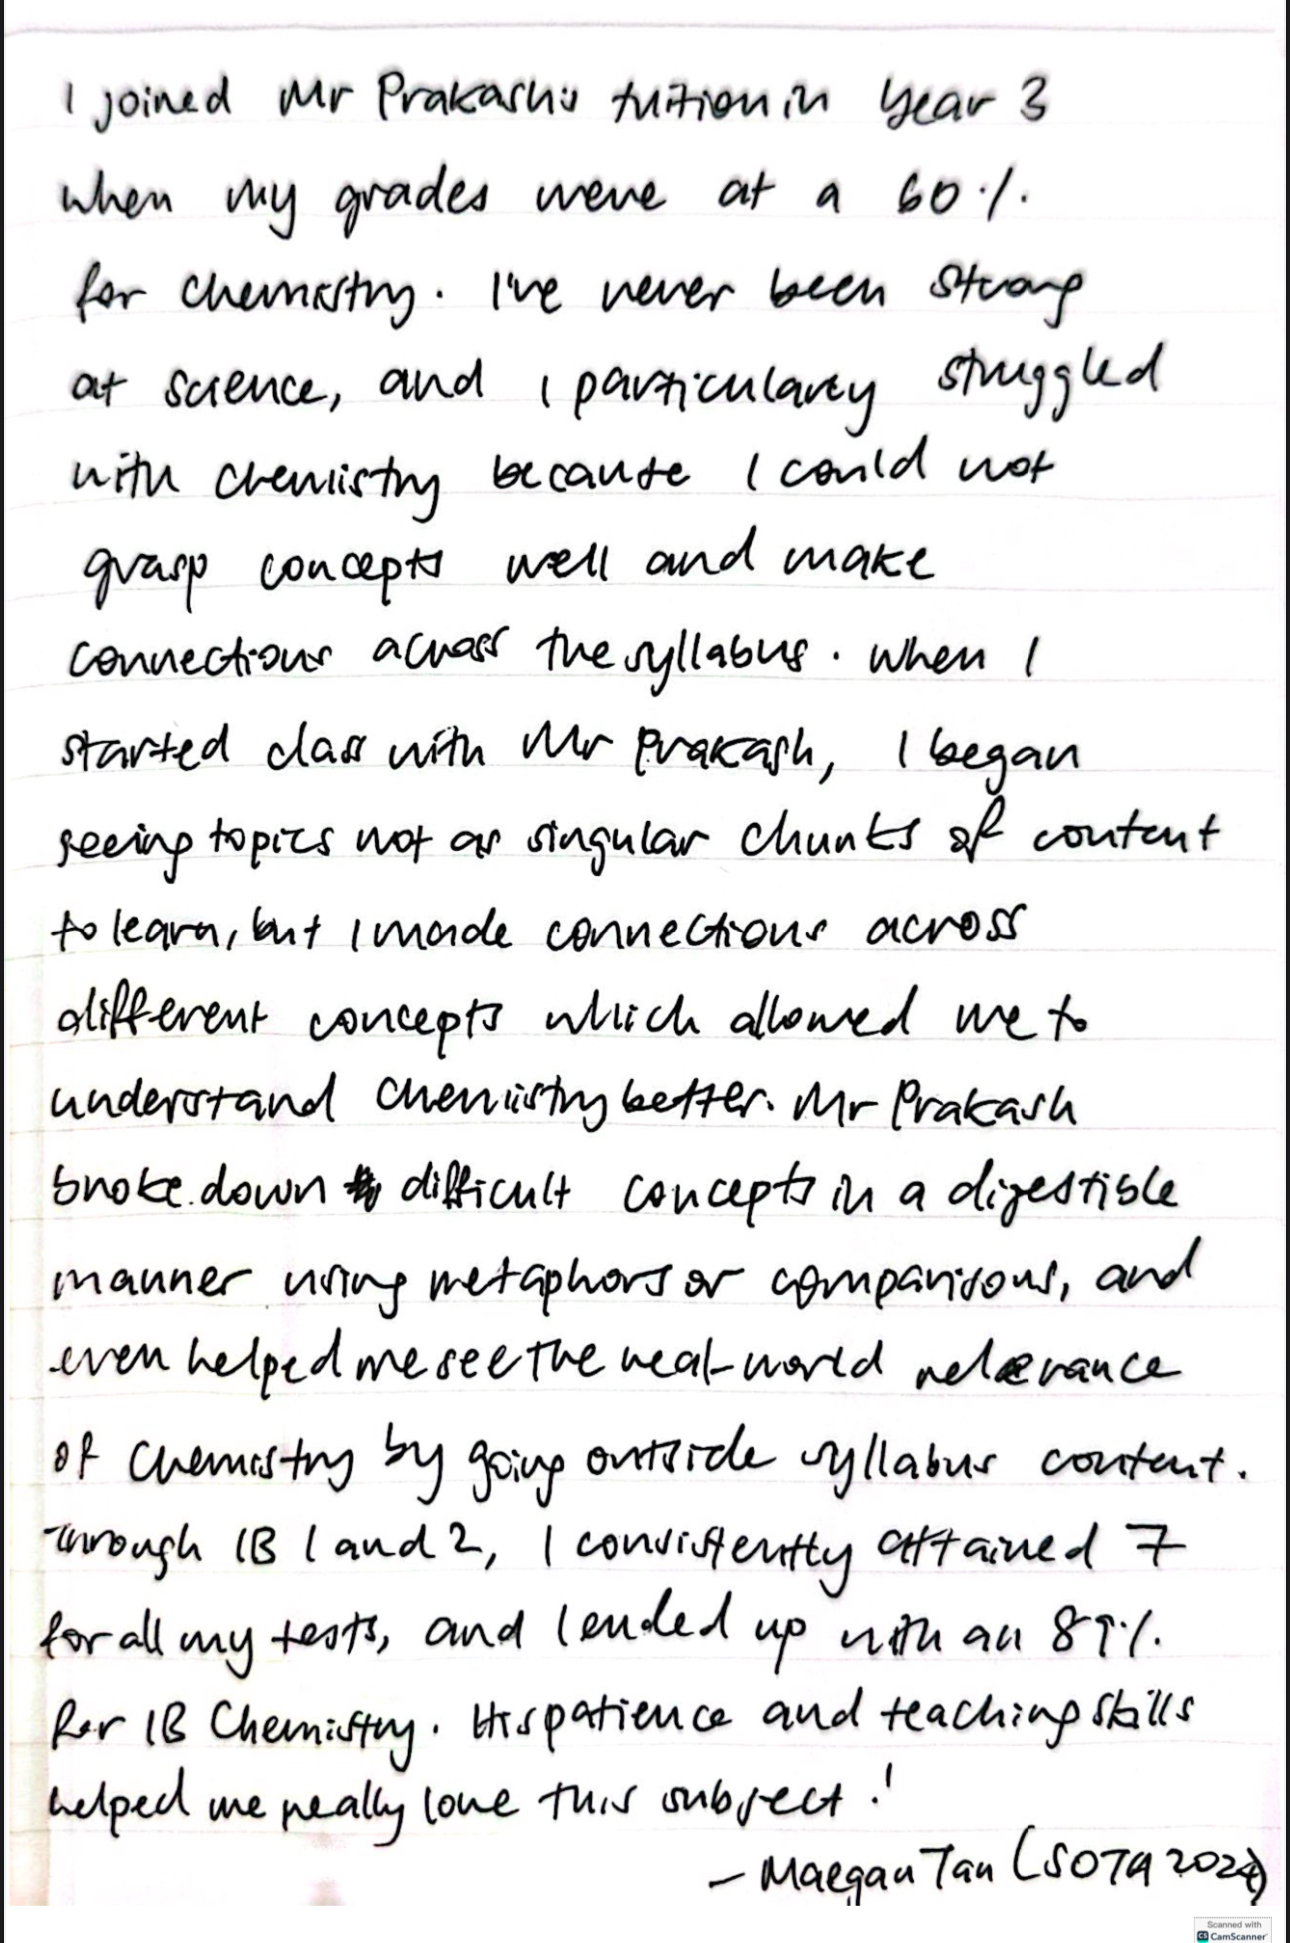 I joined Mr Prakash's tuition in Year 3
when my grades were at a 60%
for chemistry. I've never been strong
at science, and I particularly struggled
with chemistry because I could not
grasp concepts well and make
connections across the syllabus. When I
started class with Mr Prakash, I began
seeing topics not as singular chunks of content
to learn, but I made connections across
different concepts which allowed me to
understand chemistry better. Mr Prakash
broke down difficult concepts in a digestible
manner using metaphors or comparisons, and
even helped me see the real-world relevance
of chemistry by going outside syllabus content.
Through IB 1 and 2, I consistently attained 7
for all my tests, and I ended up with an 89%
for IB Chemistry. His patience and teaching skills
helped me really love this subject!
- Maegan Tan (SOTA 2024)
Scanned with
CS CamScanner